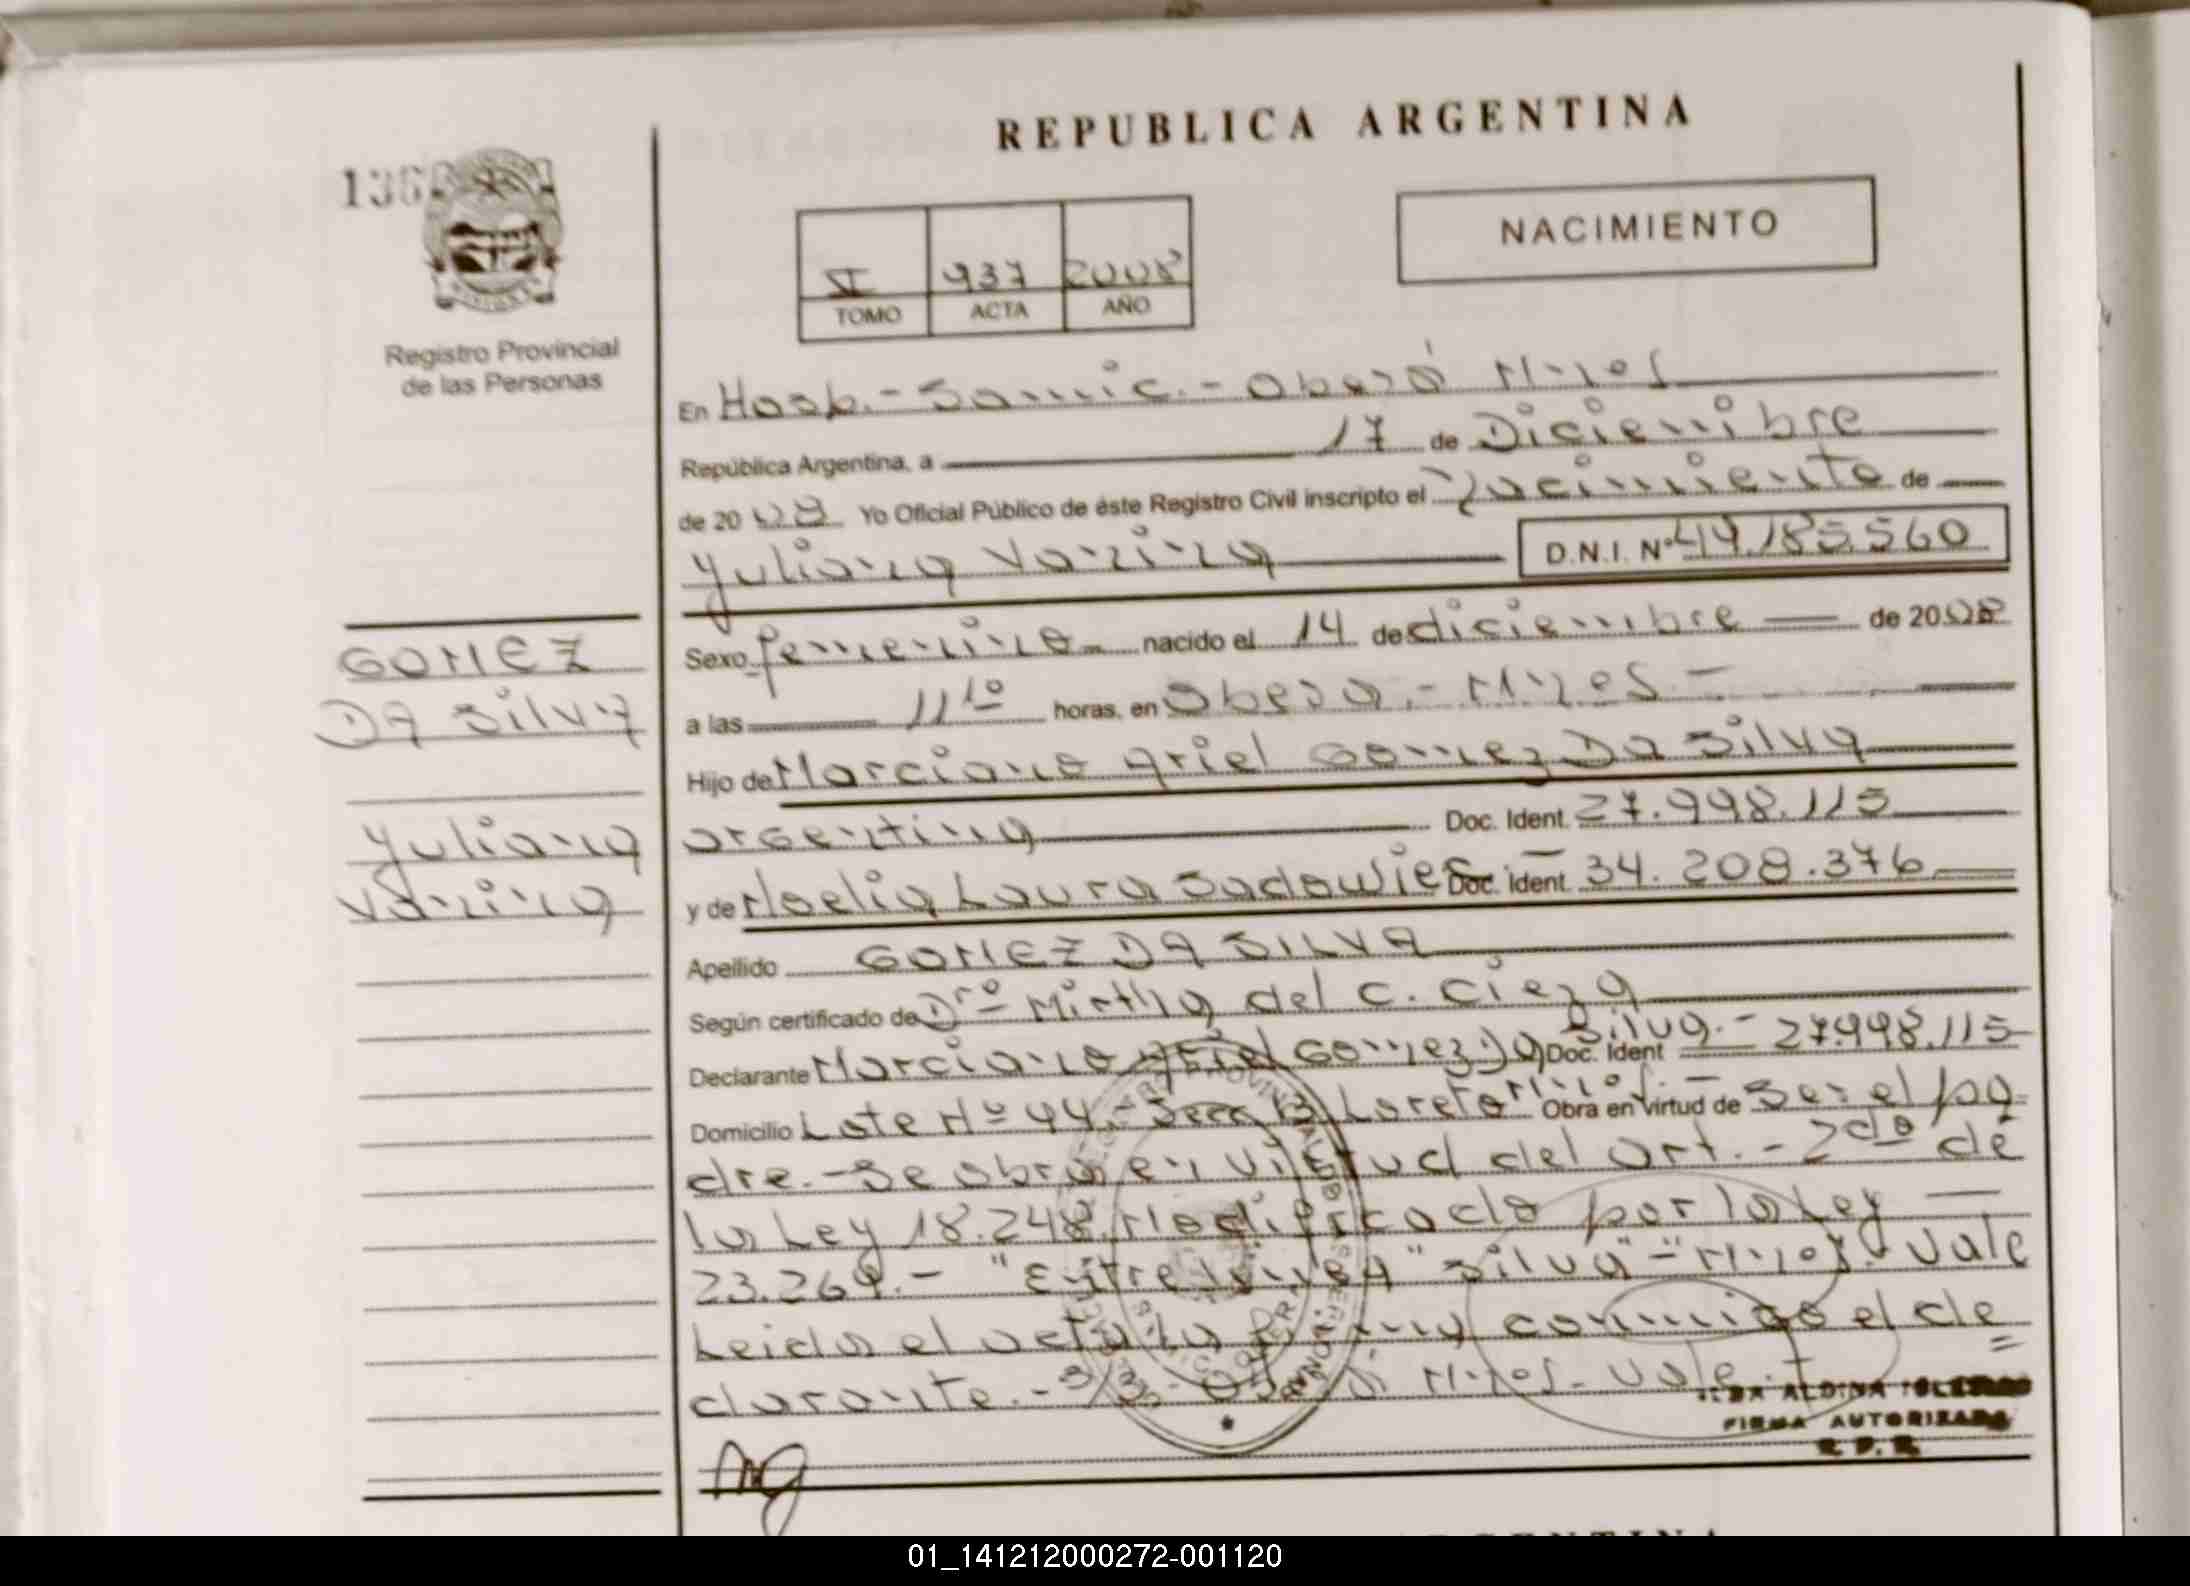 REPUBLICA ARGENTINA
NACIMIENTO
937 2008
TOMO ACTA AÑO
Registro Provincial
de las Personas
En Hosp.- Samic.- Oberá Mnes
República Argentina, a 17 de Diciembre
de 2008 Yo Oficial Público de éste Registro Civil inscripto el Nacimiento de
Yuliana Vanina D.N.I. Nº 49.185.560
GOMEZ
DA Silva
Yuliana
Vanina
Sexo femenino nacido el 14 de diciembre de 2008
a las 11 10 horas, en Oberá.- Mnes -
Hijo de Marciano Ariel Gomez Da Silva
argentina Doc. Ident. 27.998.115
y de Noelia Laura Sadowies Doc. Ident. 34.208.376
Apellido GOMEZ DA SILVA
Según certificado de Dra Mirtha del C. Cieza
Silva.-
Declarante Marciano Ariel Gomez Da Doc. Ident 27.998.115
Mnes.-
Domicilio Lote Nº 44.- Secc Loreto Obra en virtud de Ser el pa
dre.- Se obra en virtud del art.- 2do de
la Ley 18.248 Modificado por la Ley
23.264.- "Entre linea" "Silva" - "Mnes". Vale
Leida el acta la firma conmigo el de
clarante.- Mnes- Vale.-
ALDINA
FIRMA AUTORIZADA
R. P. P.
ARGENTINA
01_141212000272-001120